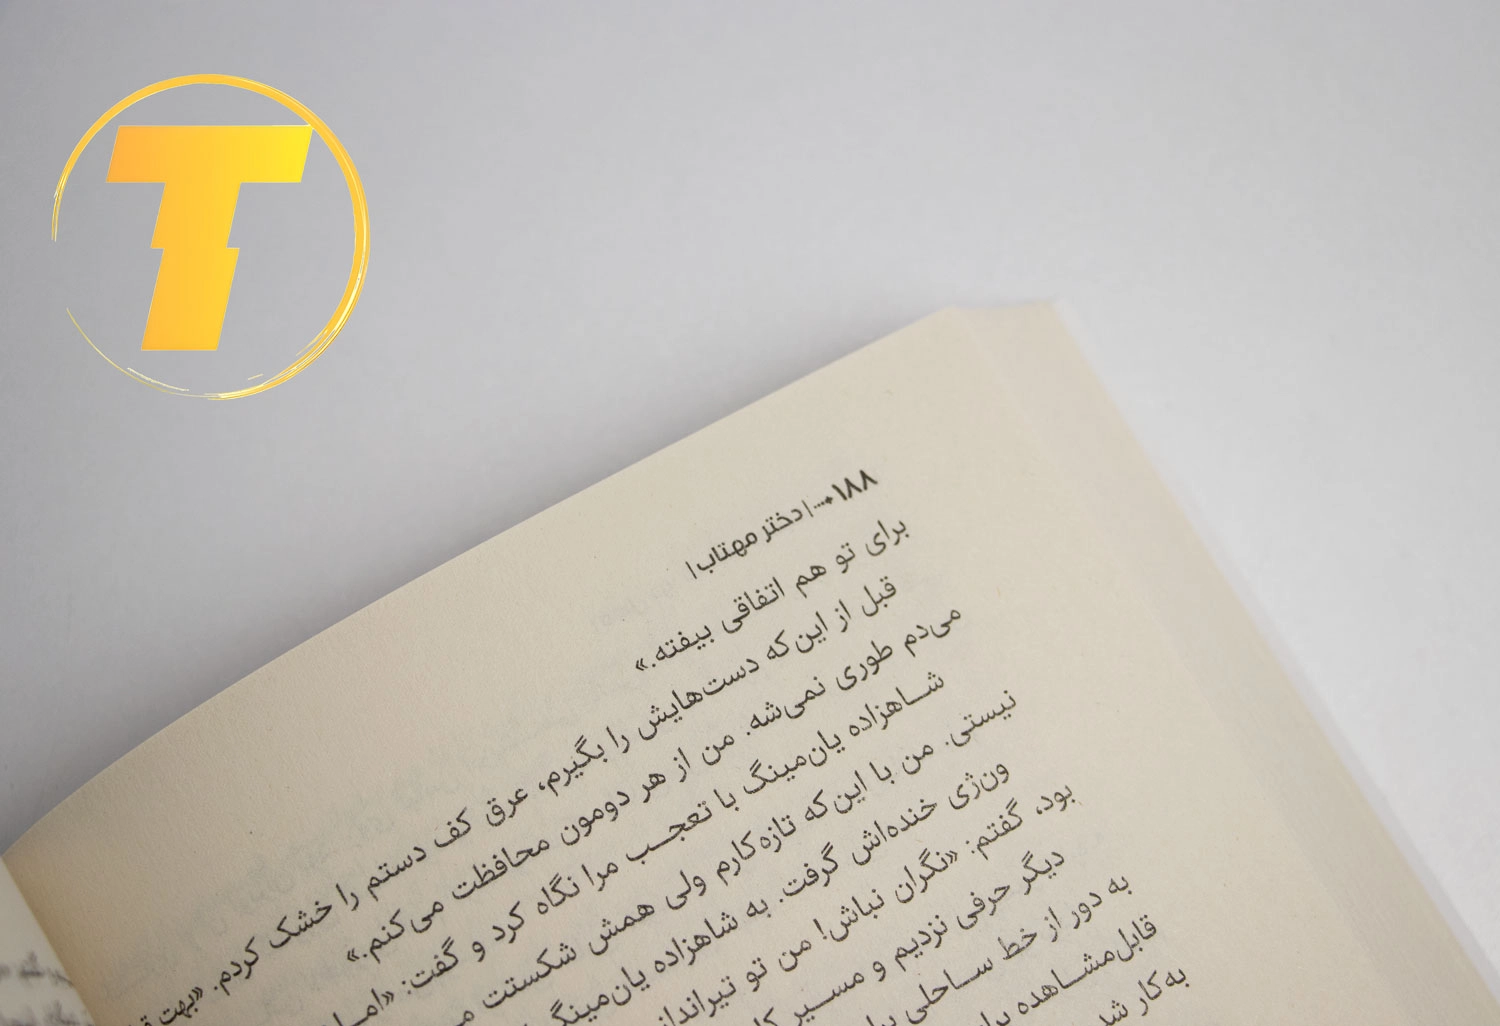 T
۱۸۸ ا دختر مهتاب ا
برای تو هم اتفاقی بیفته.»
قبل از این‌که دست‌هایش را بگیرم، عرق کف دستم را خشک کردم. «بهت
می‌دم طوری نمی‌شه. من از هر دومون محافظت می‌کنم.»
شاهزاده یان‌مینگ با تعجب مرا نگاه کرد و گفت: «اما
نیستی. من با این‌که تازه‌کارم ولی همش شکستت
ون‌ژی خنده‌اش گرفت. به شاهزاده یان‌مینگ
بود، گفتم: «نگران نباش! من تو تیراندا
دیگر حرفی نزدیم و مسیر
به دور از خط ساحلی
قابل‌مشاهده
به‌کار